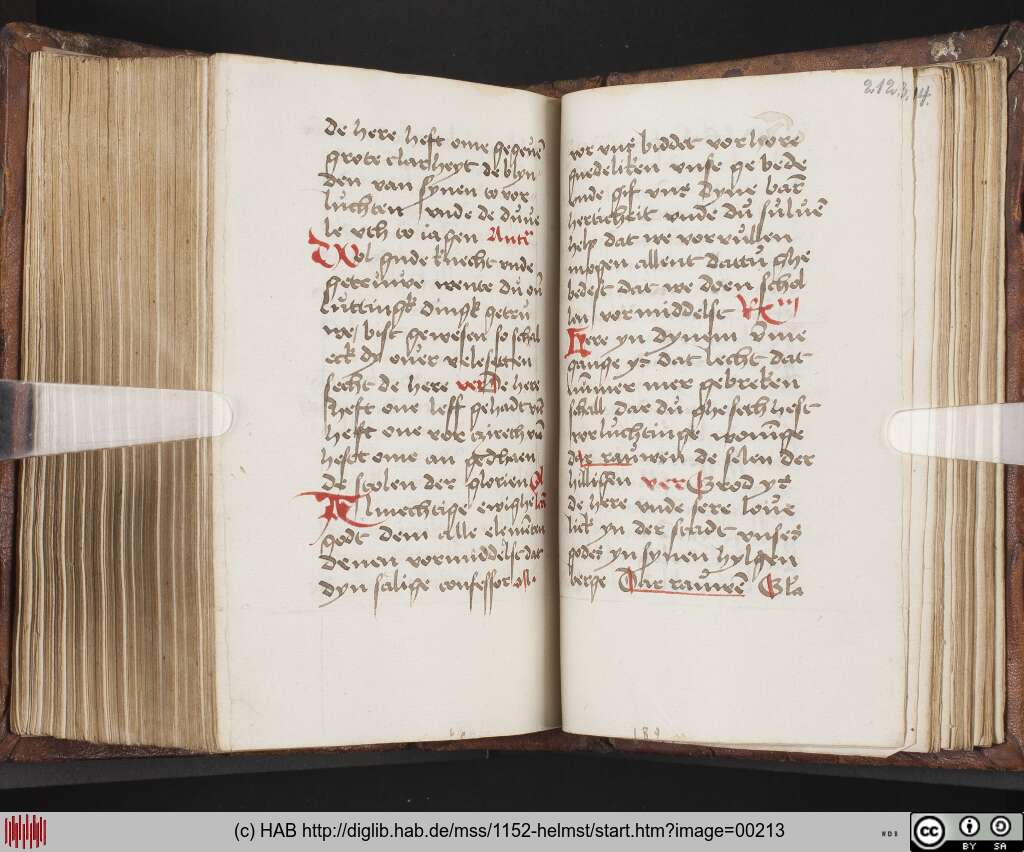 de here heft ome gegeuē
grote clarheyt de blyn
den van synen to vor
luchten vnde de duue
le vth to iagen Antī
Wol gude knecht vnde
getruwe wente du ouͤ
luttingk dingk getru
we bist gewesen so schal
eck dy ouer vele setten
secht de here vers De here
heft one leff gehadt vn̄
heft one vor tzirech vn̄
heft ome an gedaen
de stolen der glorien
Almechtige ewighe
godt dem alle elemēten
denen vormiddelst dat
dyn salige confessor
212.
vor vns biddet vorhore
gnedeliken vnse gebede
vnde gif vns dyne bar̄
herticheit vnde du suluē
help dat we voruullen
mogen allent dattu ghe
bedest dat we doen schol
len vormiddelst
Here yn dynem vme
gange ys dat lecht dat
nummer mer gebreken
schall dar du ghesech hest
vorluchtinge woninge
dar rauwen de selen der
hilligen vers Grod ys
de here vnde sere loue
lick yn der stadt vnses
godes yn synen hylgen
berge Dar rauwē Gla
(c) HAB http://diglib.hab.de/mss/1152-helmst/start.htm?image=00213
WDB
cc BY SA